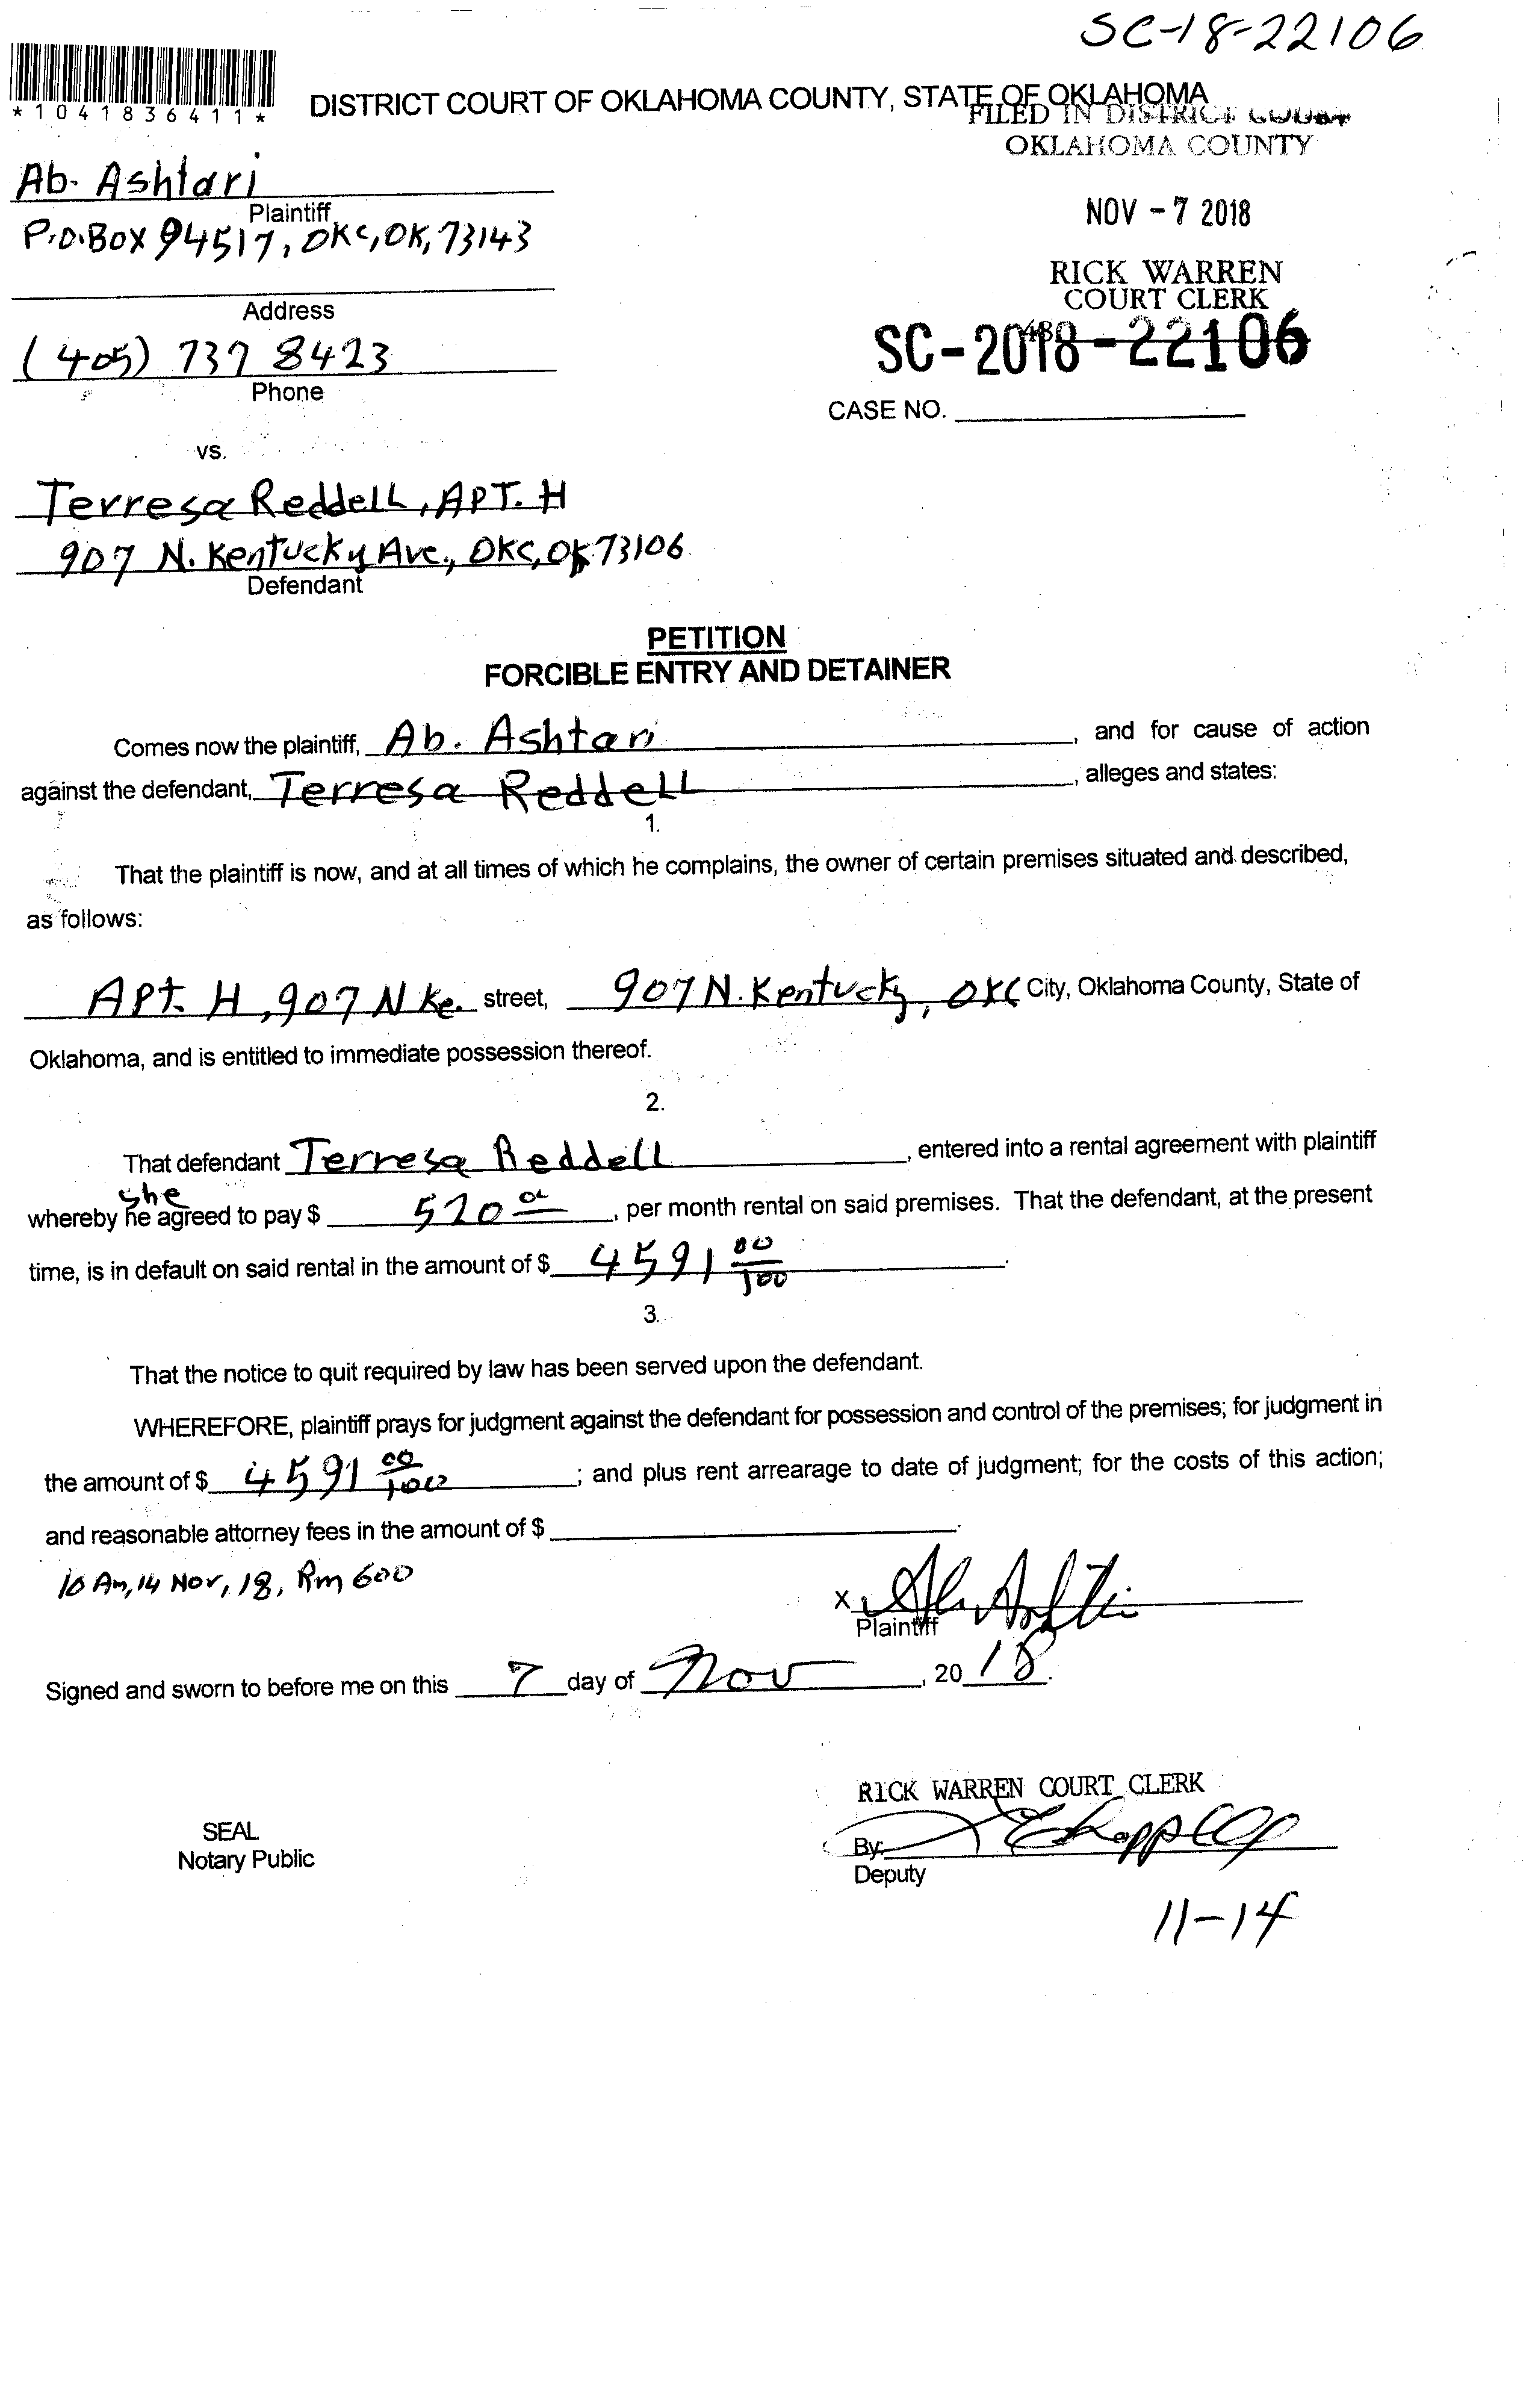 SC-18-22106
*1041836411*
DISTRICT COURT OF OKLAHOMA COUNTY, STATE OF OKLAHOMA
FILED IN DISTRICT COURT
OKLAHOMA COUNTY
Ab. Ashtari
Plaintiff
P.O.Box 94517, OKC, OK, 73143
NOV - 7 2018
RICK WARREN
COURT CLERK
Address
SC-2018-22106
(405) 737 8423
Phone
CASE NO.
vs.
Terresa Reddell, APT. H
907 N. Kentucky Ave., OKC, OK 73106
Defendant
PETITION
FORCIBLE ENTRY AND DETAINER
Comes now the plaintiff, Ab. Ashtari, and for cause of action
against the defendant, Terresa Reddell, alleges and states:
1.
That the plaintiff is now, and at all times of which he complains, the owner of certain premises situated and described,
as follows:
APt. H, 907 N Ke. street, 907 N. Kentucky, OKC City, Oklahoma County, State of
Oklahoma, and is entitled to immediate possession thereof.
2.
That defendant Terresa Reddell, entered into a rental agreement with plaintiff
she
whereby he agreed to pay $ 520 00, per month rental on said premises. That the defendant, at the present
time, is in default on said rental in the amount of $ 4591 00/100.
3.
That the notice to quit required by law has been served upon the defendant.
WHEREFORE, plaintiff prays for judgment against the defendant for possession and control of the premises; for judgment in
the amount of $ 4591 00/100; and plus rent arrearage to date of judgment; for the costs of this action;
and reasonable attorney fees in the amount of $
10 Am, 14 Nov, 18, Rm 600
X Ab. Ashtari
Plaintiff
Signed and sworn to before me on this 7 day of Nov, 20 18.
RICK WARREN COURT CLERK
SEAL
Notary Public
By:
Deputy
11-14